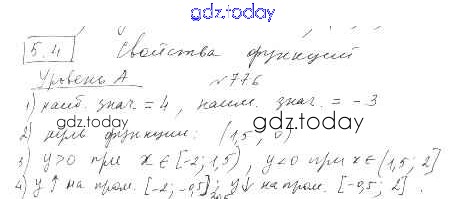 gdz.today
5.4 Свойства функций
Уровень А №776
1) наиб. знач. = 4, наим. знач. = -3
gdz.today gdz.today
2) нуль функции: (1,5; 0)
3) y>0 при x∈[-2; 1,5), y<0 при x∈(1,5; 2]
4) y↑ на пром. [-2; -0,5]; y↓ на пром. [-0,5; 2].